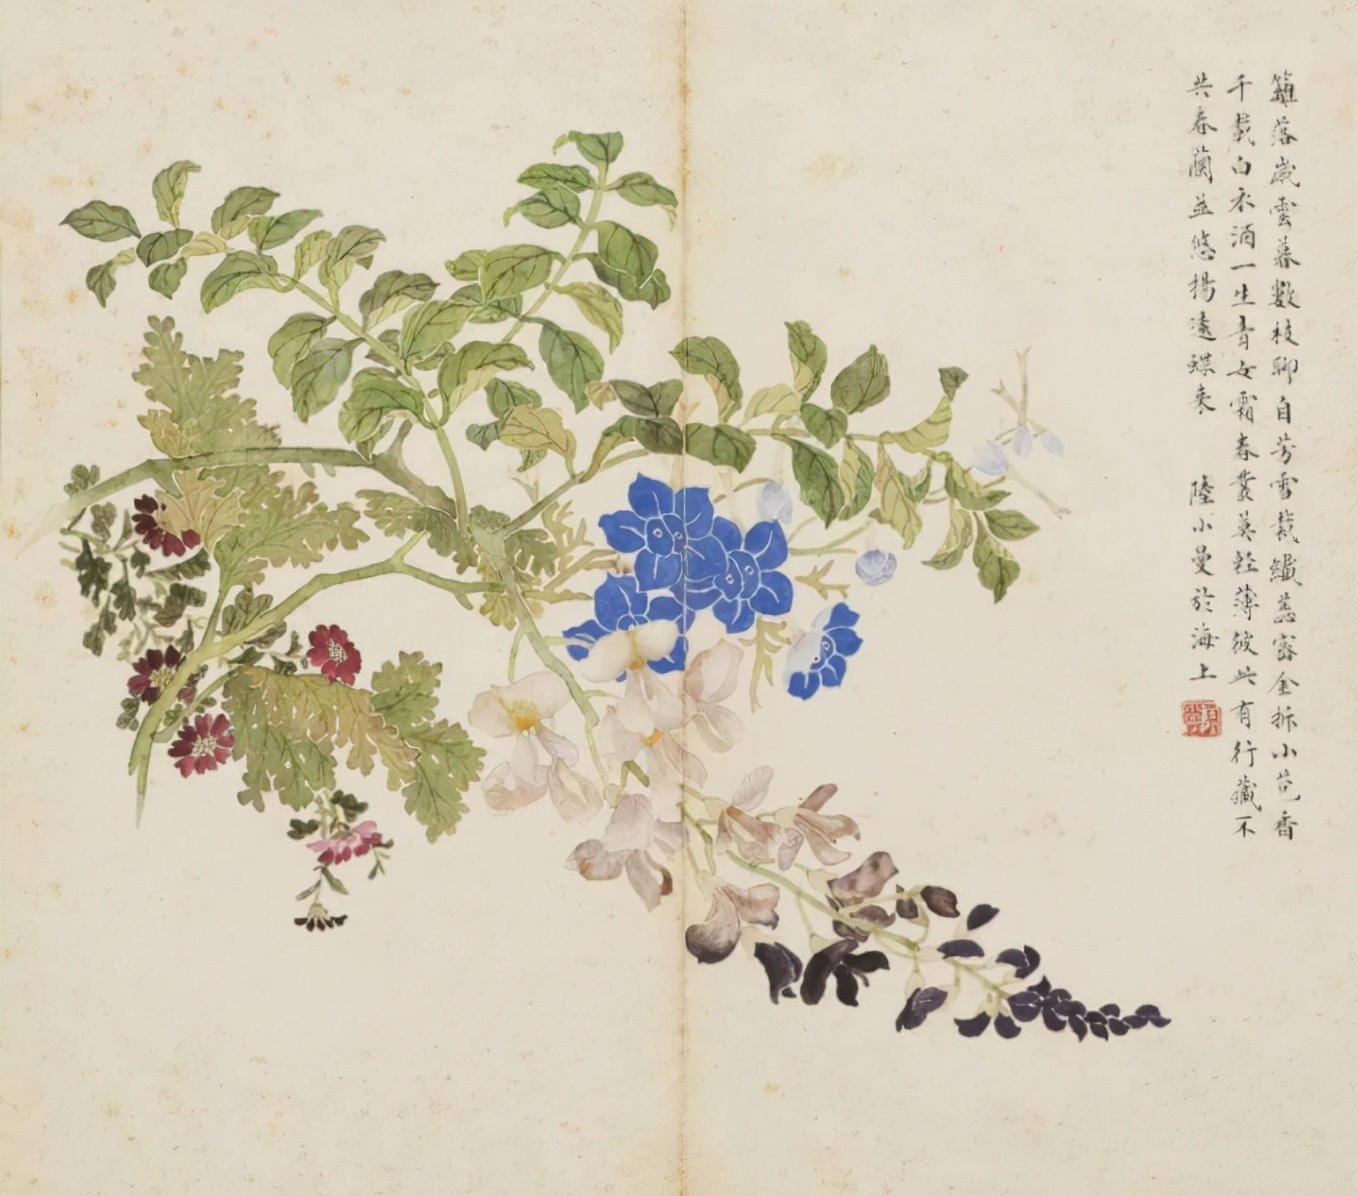 籬落歲雲暮數枝聊自芳雪裁纖蕊密金拆小苞香
千載白衣酒一生青女霜春叢莫輕薄彼此有行藏不
共春蘭並悠揚遠蝶來　陸小曼於海上